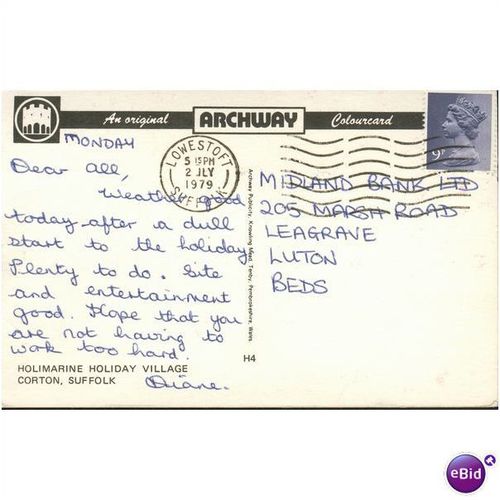 An original ARCHWAY Colourcard
LOWESTOFT
5 15PM
2 JLY
1979
SUFFOLK
9P
MONDAY
Dear all,
Weather good
today after a dull
start to the holiday
Plenty to do. Site
and entertainment
good. Hope that you
are not having to
work too hard.
Diane.
HOLIMARINE HOLIDAY VILLAGE
CORTON, SUFFOLK
Archway Publicity, Knowling Mead, Tenby, Pembrokeshire, Wales.
H4
MIDLAND BANK LTD
205 MARSH ROAD
LEAGRAVE
LUTON
BEDS
eBid